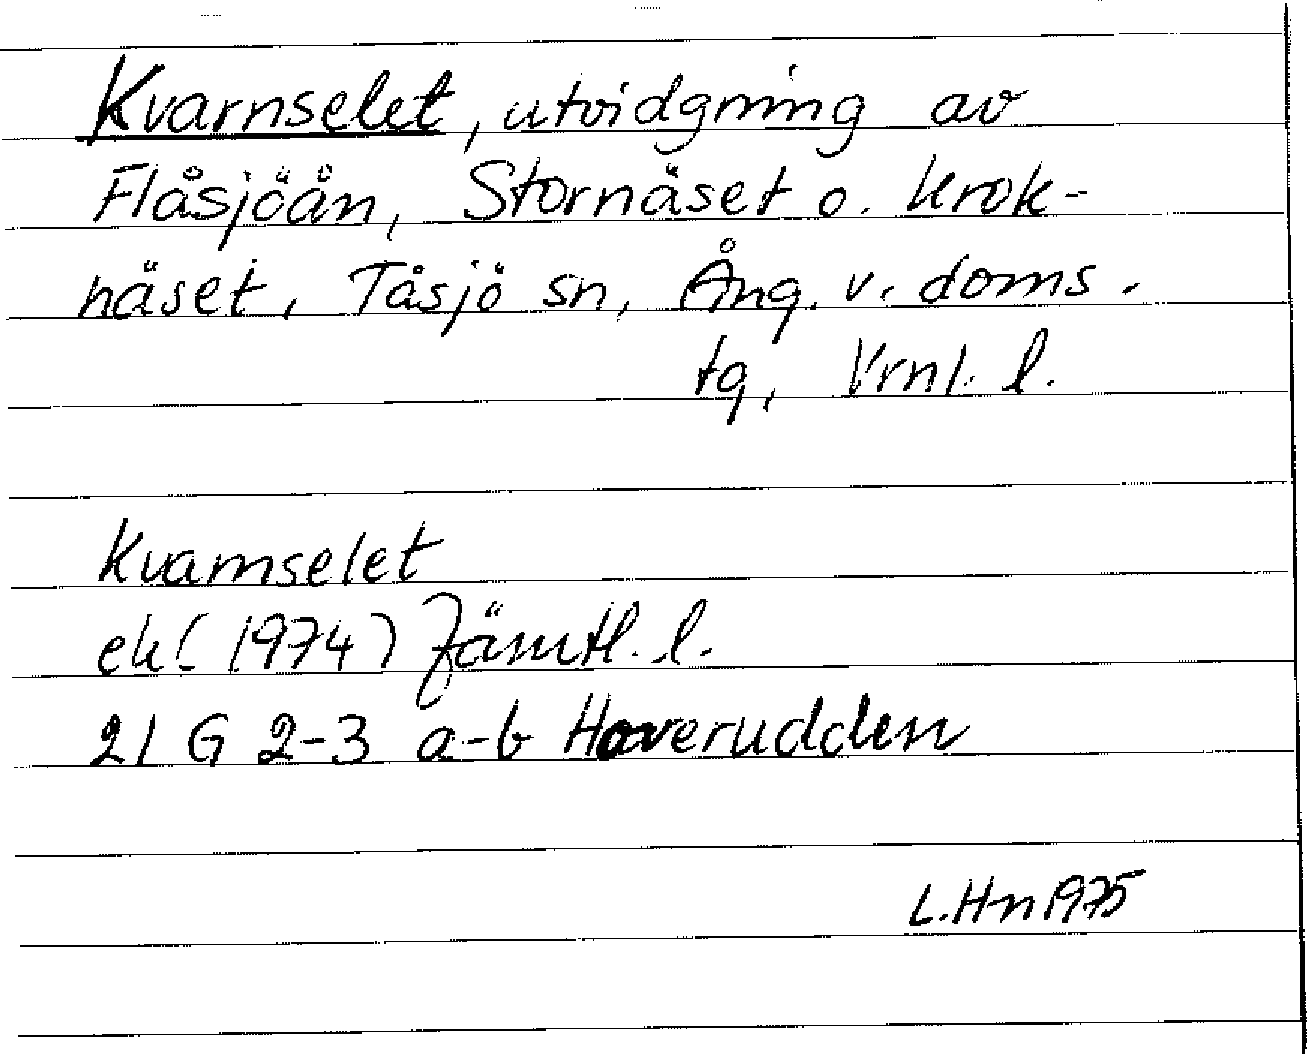 Kvarnselet, utvidgning av
Flåsjöån, Stornäset o. Krok-
näset, Tåsjö sn, Ång. v. doms.
tg, Vrnl. l.
Kvarnselet
ek (1974) Jämtl. l.
21 G 2-3 a-b Haverudden
L.Hn 1975